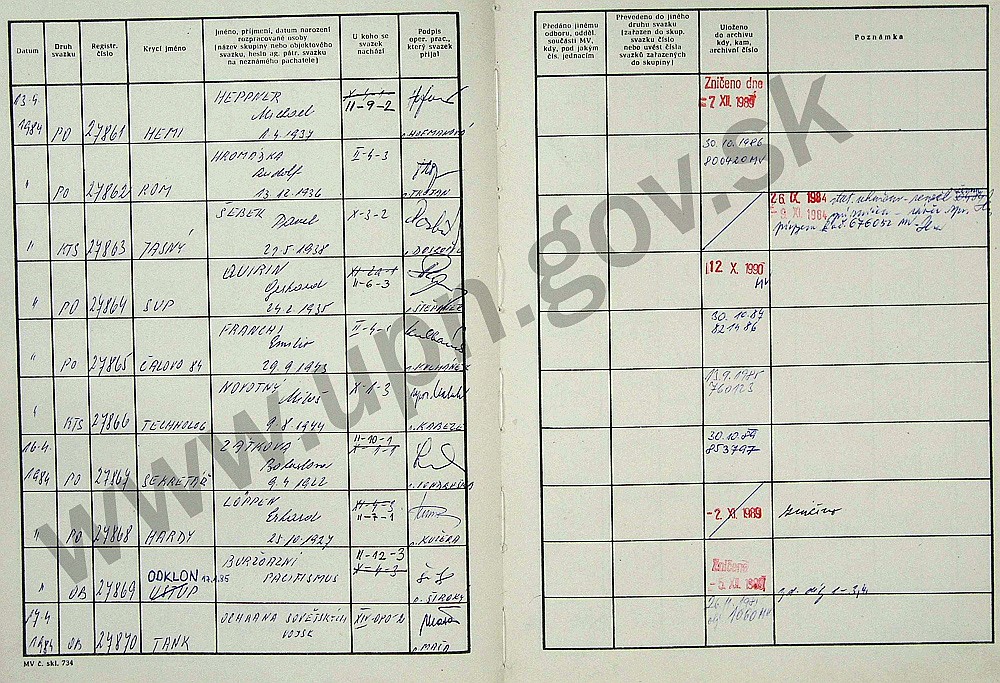 Datum
Druh svazku
Registr. číslo
Krycí jméno
Jméno, příjmení, datum narození
rozpracované osoby
(název skupiny nebo objektového
svazku, heslo ag. pátr. svazku
na neznámého pachatele)
U koho se
svazek
nachází
Podpis
oper. prac.,
který svazek
přijal
13.4.
1984 PO 27861 HEMI
HEPPNER
Michael
1.4.1937
II-9-2
HOFMANOVÁ
" PO 27862 ROM
HROMÁDKA
Rudolf
13.12.1936
II-4-3
" KTS 27863 JASNÝ
ŠEBEK
Pavel
27.5.1938
X-3-2
" PO 27864 SUP
QUIRIN
Gerhard
24.2.1935
II-6-3
" PO 27865 ČALOVO 84
FRANCHI
Emilio
29.9.1943
II-4-1
" KTS 27866 TECHNOLOG
NOVOTNÝ
Miloš
9.8.1944
X-1-3
16.4.
1984 PO 27867 SEKRETÁŘ
ZÁTKOVÁ
Bohuslava
9.4.1922
II-10-1
X-1-1
" PO 27868 HARDY
LÖPPEN
Erhard
25.10.1927
XI-4-3
II-7-1
KUČERA
" OB 27869 ODKLON 17.1.85
ÚSTUP
BURŽOAZNÍ
PACIFISMUS
II-12-3
X-4-3
ŠIROKÝ
17.4.
1984 OB 27870 TANK
OCHRANA SOVĚTSKÝCH
VOJSK
MAŤA
MV č. skl. 734
Předáno jinému
odboru, odděl.
součásti MV,
kdy, pod jakým
čís. jednacím
Převedeno do jiného
druhu svazku
(zařazen do skup.
svazku číslo
nebo uvést čísla
svazků zařazených
do skupiny)
Uloženo
do archivu
kdy, kam,
archivní číslo
Poznámka
Zničeno dne
-7 XII. 1989
30.10.1986
800420 MV
26. IX. 1984
-9. XI. 1984
12 X. 1990
MV
30.10.87
821486
13.9.1985
760123
30.10.89
853797
-2. XI. 1989 zničeno
Zničeno
-5. XII. 1989
www.upn.gov.sk